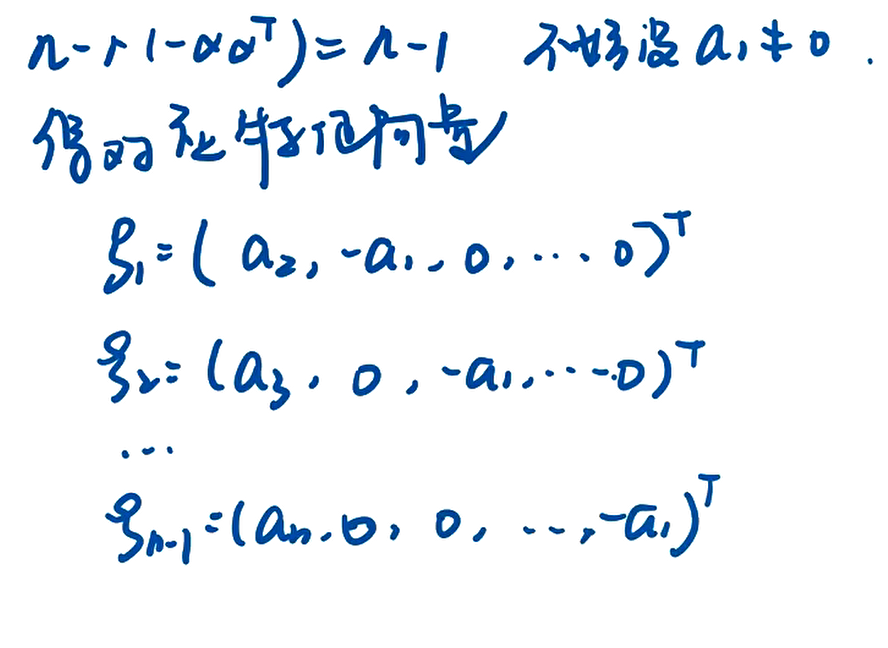 n-r(-αα^T)=n-1 不妨设 a₁≠0.
得对应特征向量
ξ₁=( a₂, -a₁, 0, ... 0)^T
ξ₂=(a₃, 0, -a₁, ... 0)^T
...
ξₙ₋₁=(aₙ, 0, 0, ..., -a₁)^T